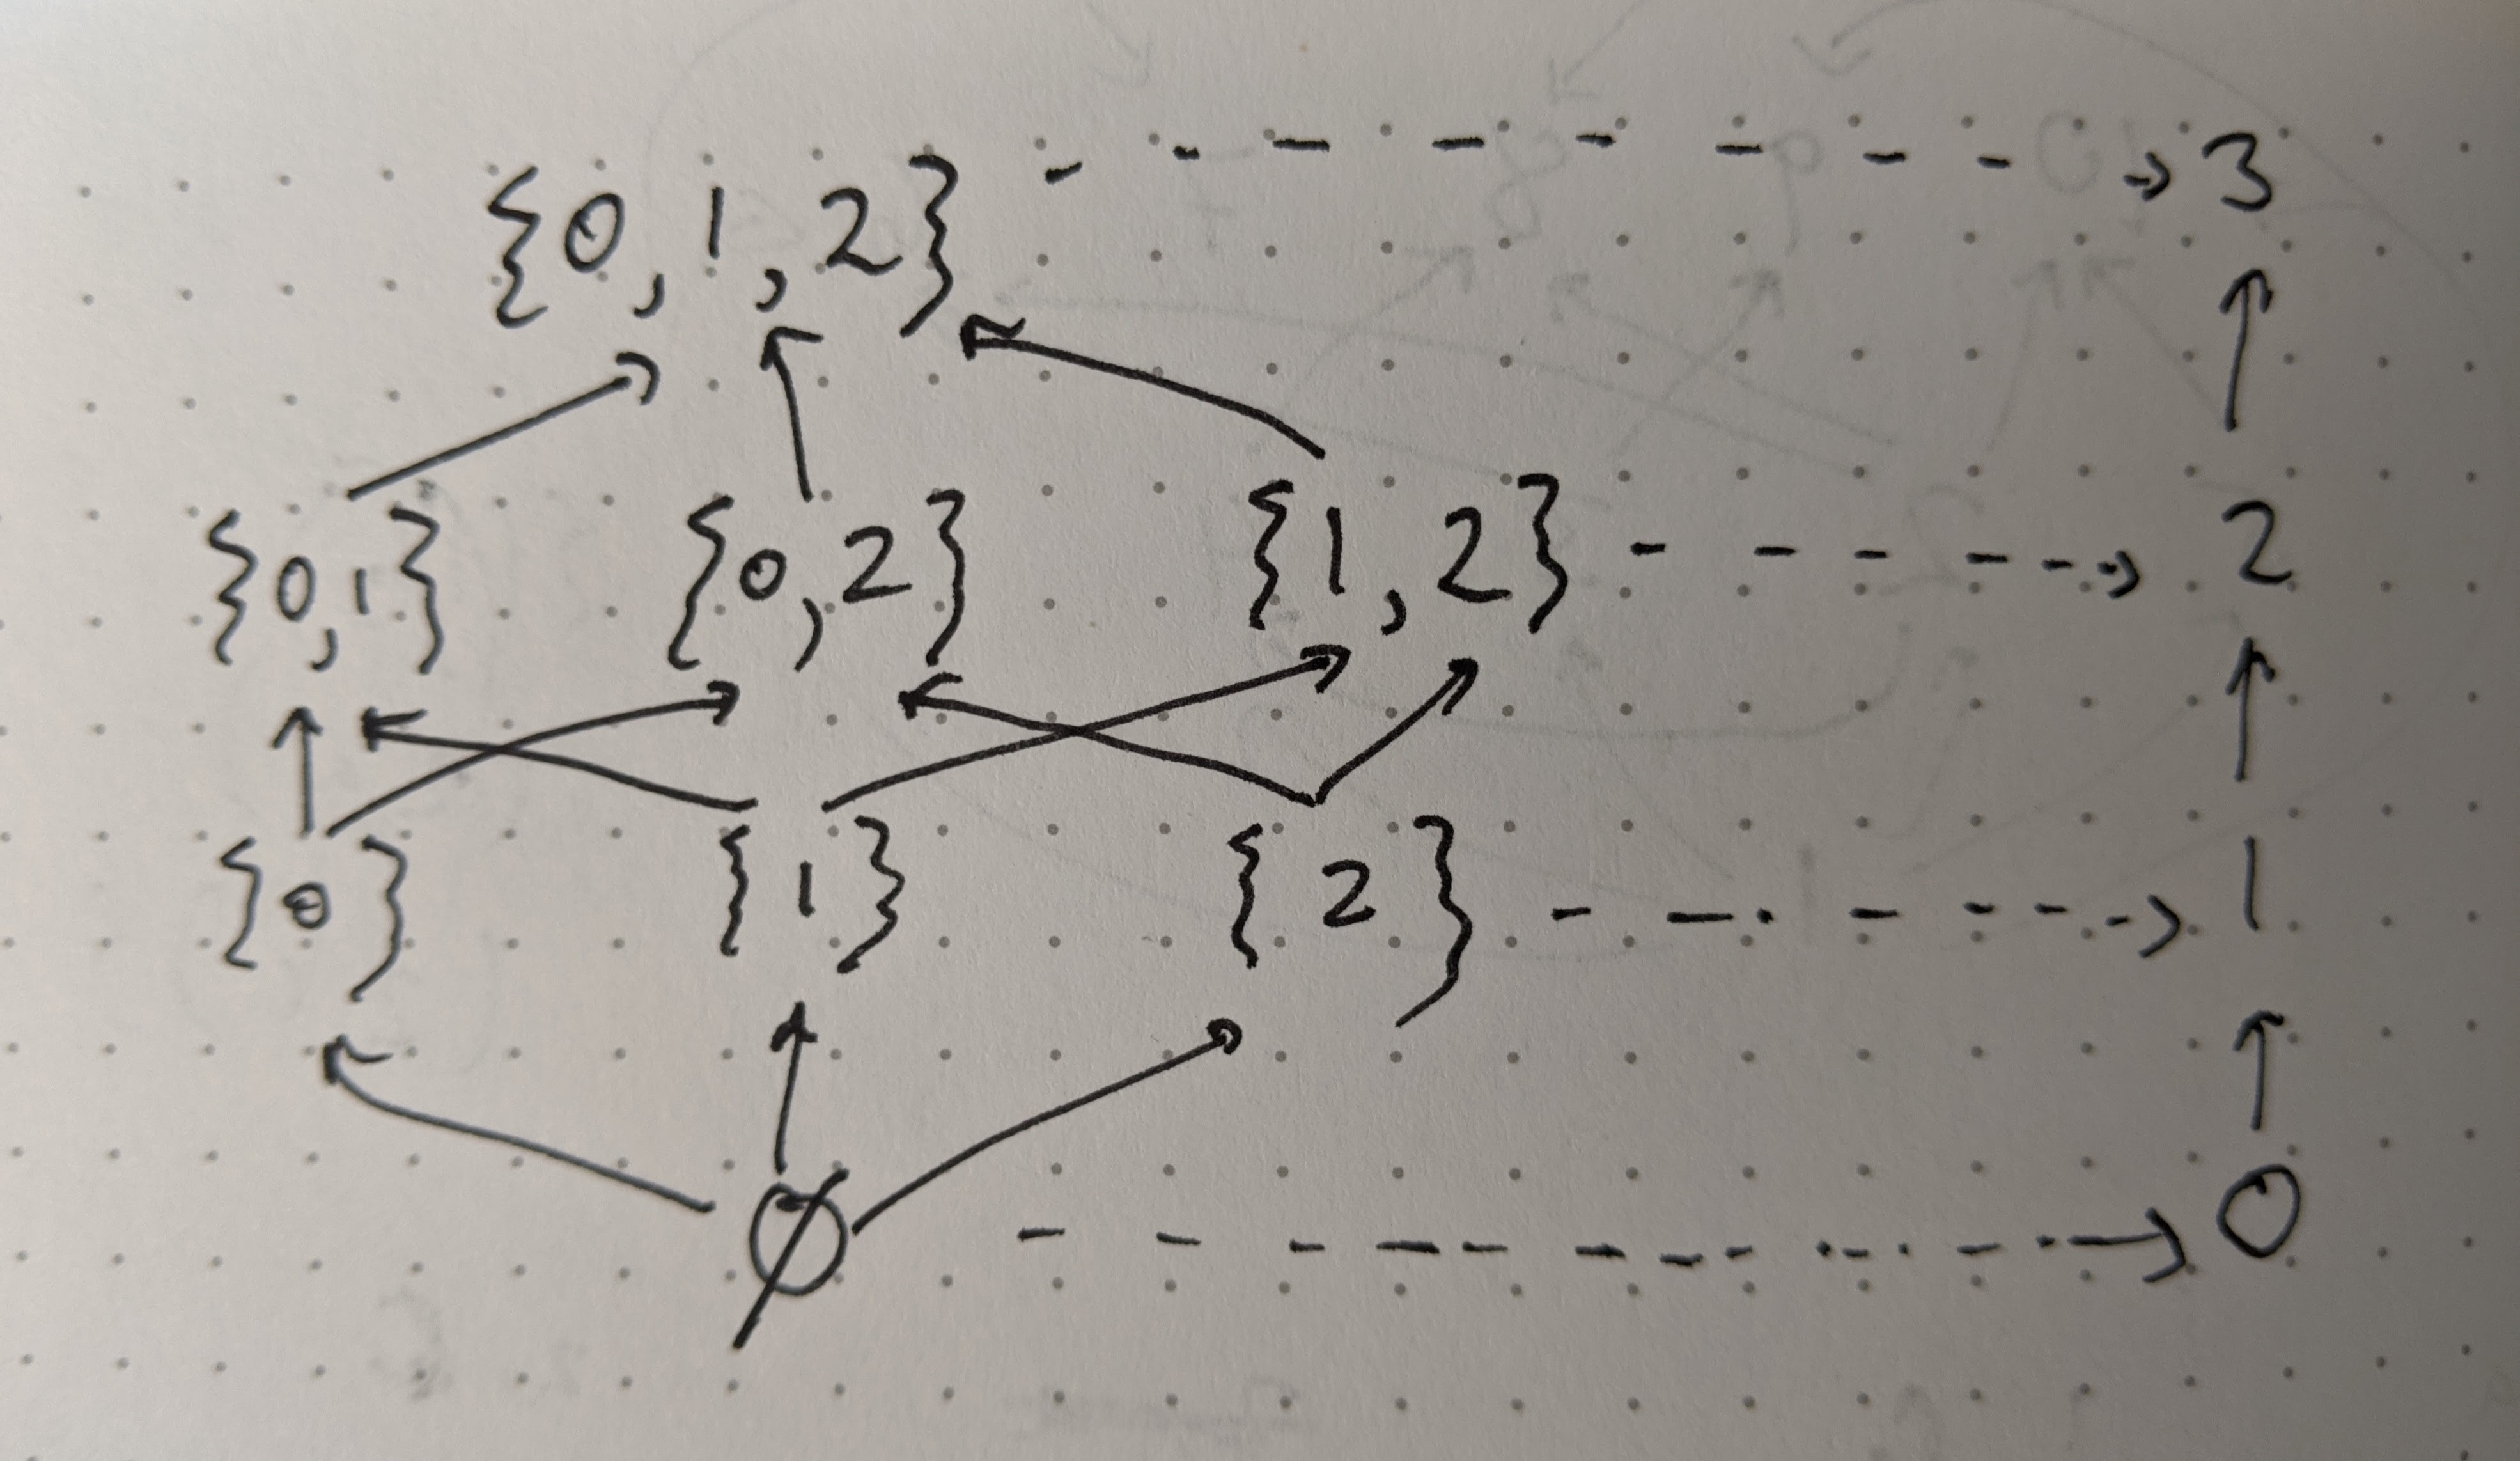 {0,1,2} 3
{0,1} {0,2} {1,2} 2
{0} {1} {2} 1
∅ 0